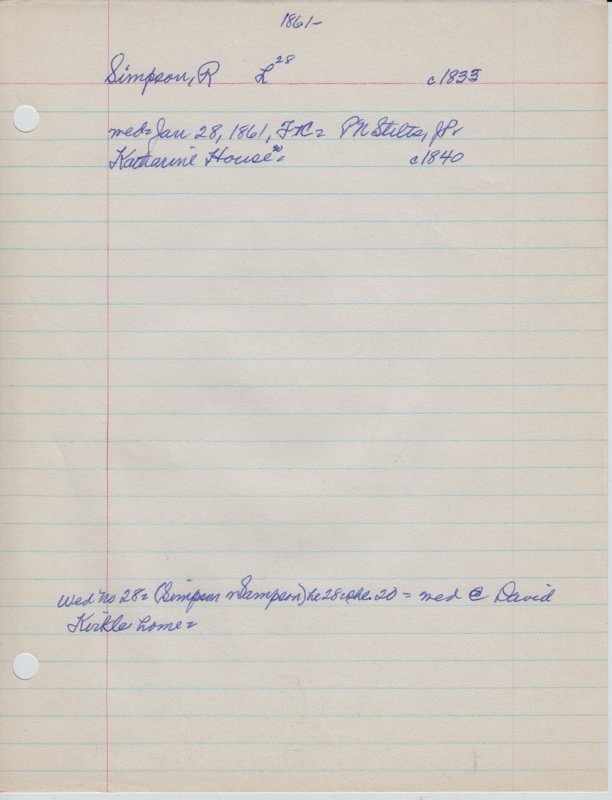 1861-
Simpson, R L 28 c1833
wed= Jan 28, 1861, = PN Stilts, JP.
Katharine House 20 = c1840
wed no 28= (Simpson Sampson) he 28 she 20 = wed @ David
Kirkle home=